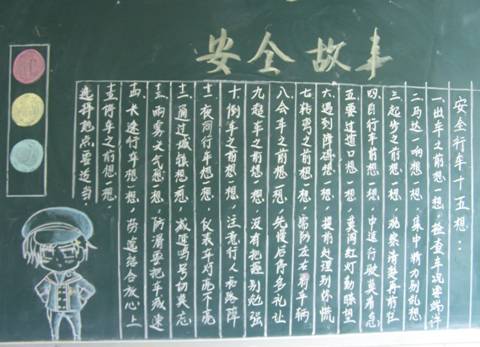 安全故事
安全行车十五想：
一.出车之前想一想，检查车况要端详
二.马达一响想一想，集中精力别乱想
三.起步之前想一想，观察清楚再前往
四.自行车前想一想，中速行驶莫着急
五.要过道口想一想，莫闯红灯勤瞭望
六.遇到障碍想一想，提前处理别惊慌
七.转弯之前想一想，需防左右有车辆
八.会车之前想一想，先慢后停多礼让
九.超车之前想一想，没有把握别勉强
十.倒车之前想一想，注意行人和路障
十一.夜间行车想一想，仪表车灯亮不亮
十二.通过城镇想一想，减速鸣号切莫忘
十三.雨雾天气想一想，防滑要把车减速
十四.长途行车想一想，劳逸结合放心上
十五.停车之前想一想，
选择地点要适当.